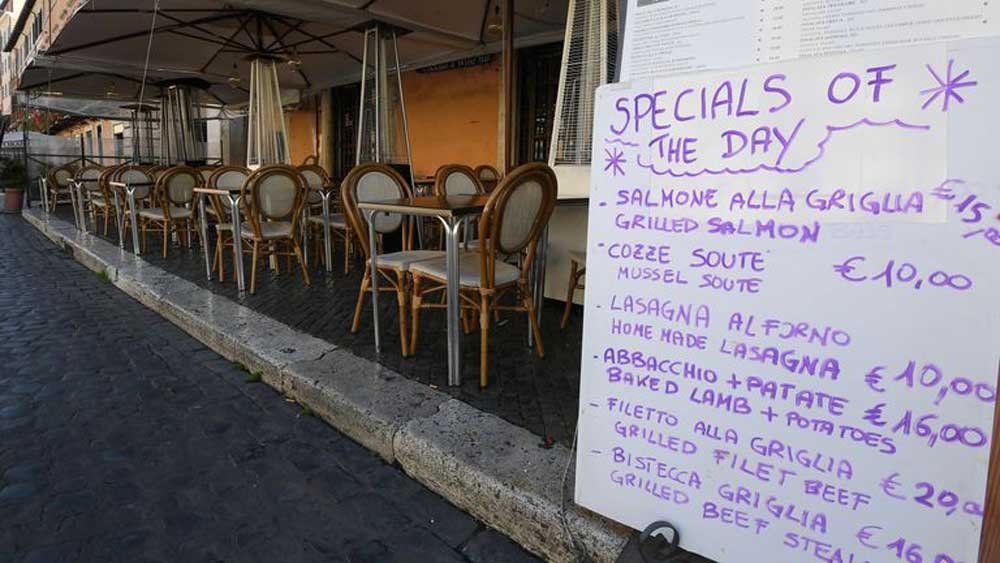 SPECIALS OF
THE DAY
- SALMONE ALLA GRIGLIA €15,
GRILLED SALMON
- COZZE SOUTE €10,00
MUSSEL SOUTE
- LASAGNA AL FORNO
HOME MADE LASAGNA €10,00
- ABBACCHIO + PATATE €16,00
BAKED LAMB + POTATOES
- FILETTO ALLA GRIGLIA €20,0
GRILLED FILET BEEF
- BISTECCA GRIGLIA €16,00
GRILLED BEEF STEAK